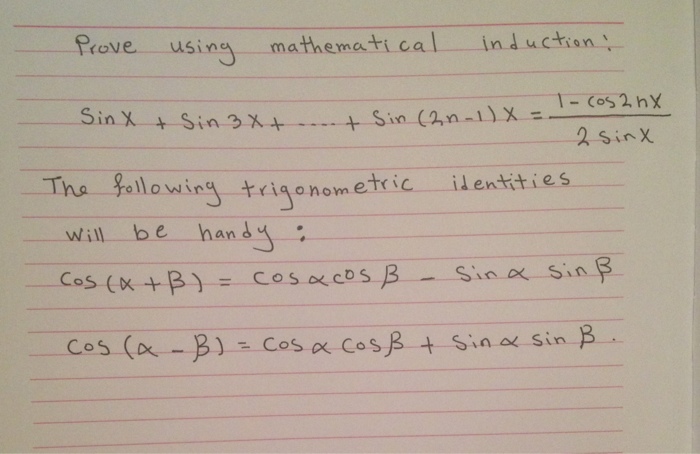 Prove using mathematical induction:
Sin X + Sin 3X + ..... + Sin (2n-1) X = 1 - cos 2nX / 2 sin X
The following trigonometric identities
will be handy :
Cos (α + β) = Cos α cos β - Sin α Sin β
Cos (α - β) = Cos α Cos β + Sin α sin β .